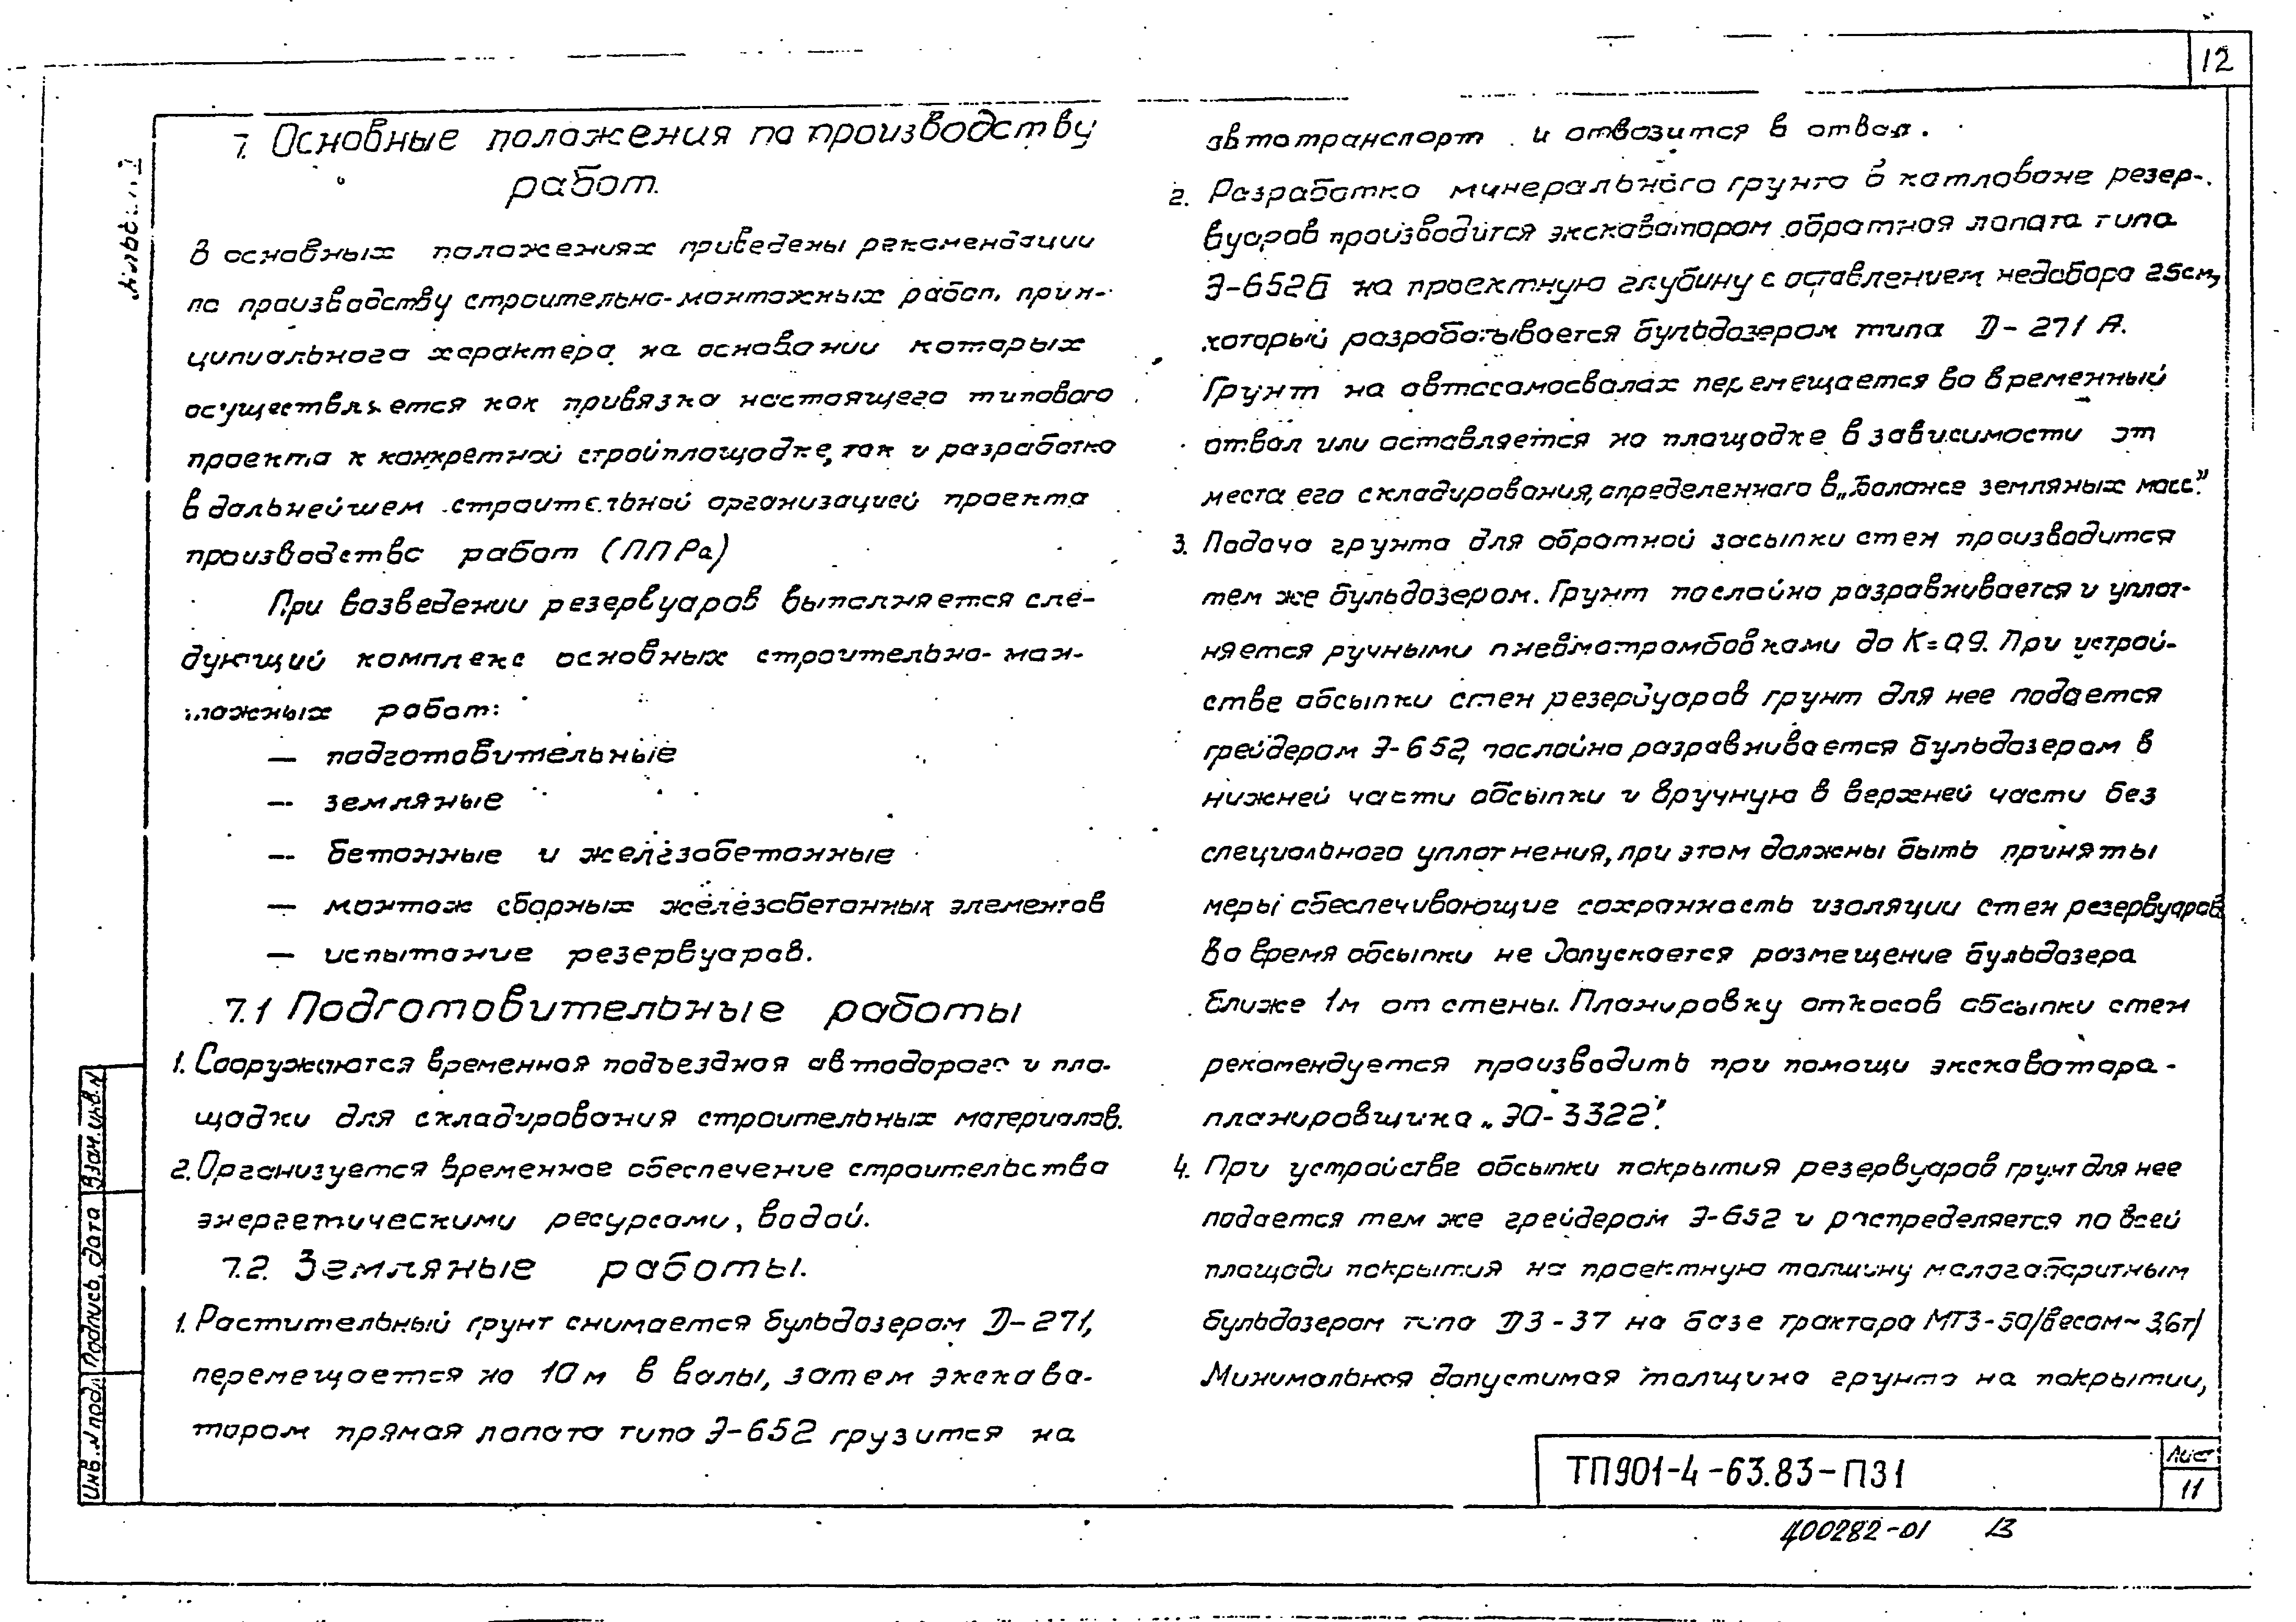 12
7. Основные положения по производству
работ.
В основных положениях приведены рекомендации
по производству строительно-монтажных работ, прин-
ципиального характера на основании которых
осуществляется как привязка настоящего типового
проекта к конкретной стройплощадке, так и разработка
в дальнейшем строительной организацией проекта
производства работ (ППРа)
При возведении резервуаров выполняется сле-
дующий комплекс основных строительно-мон-
тажных работ:
— подготовительные
— земляные
— бетонные и железобетонные
— монтаж сборных железобетонных элементов
— испытание резервуаров.
7.1 Подготовительные работы
1. Сооружаются временная подъездная автодорога и пло-
щадки для складирования строительных материалов.
2. Организуется временное обеспечение строительства
энергетическими ресурсами, водой.
7.2. Земляные работы.
1. Растительный грунт снимается бульдозером Д-271,
перемещается на 10м в валы, затем экскава-
тором прямая лопата типа Э-652 грузится на
автотранспорт и отвозится в отвал.
2. Разработка минерального грунта в котловане резер-
вуаров производится экскаватором обратная лопата типа
Э-652Б на проектную глубину с оставлением недобора 25см,
который разрабатывается бульдозером типа Д-271 А.
Грунт на автосамосвалах перемещается во временный
отвал или оставляется на площадке в зависимости от
места его складирования, определенного в „Балансе земляных масс."
3. Подача грунта для обратной засыпки стен производится
тем же бульдозером. Грунт послойно разравнивается и уплот-
няется ручными пневмотрамбовками до К=0,9. При устрой-
стве обсыпки стен резервуаров грунт для нее подается
грейдером Э-652, послойно разравнивается бульдозером в
нижней части обсыпки и вручную в верхней части без
специального уплотнения, при этом должны быть приняты
меры обеспечивающие сохранность изоляции стен резервуаров
Во время обсыпки не допускается размещение бульдозера
ближе 1м от стены. Планировку откосов обсыпки стен
рекомендуется производить при помощи экскаватора-
планировщика „ЭО-3322".
4. При устройстве обсыпки покрытия резервуаров грунт для нее
подается тем же грейдером Э-652 и распределяется по всей
площади покрытия на проектную толщину малогабаритным
бульдозером типа ДЗ-37 на базе трактора МТЗ-50/весом~3,6т/
Минимальная допустимая толщина грунта на покрытии,
Инв. N подл
Подпись, дата
Взам. инв. N
ТП901-4-63.83-ПЗ1
Лист
11
400282-01 13